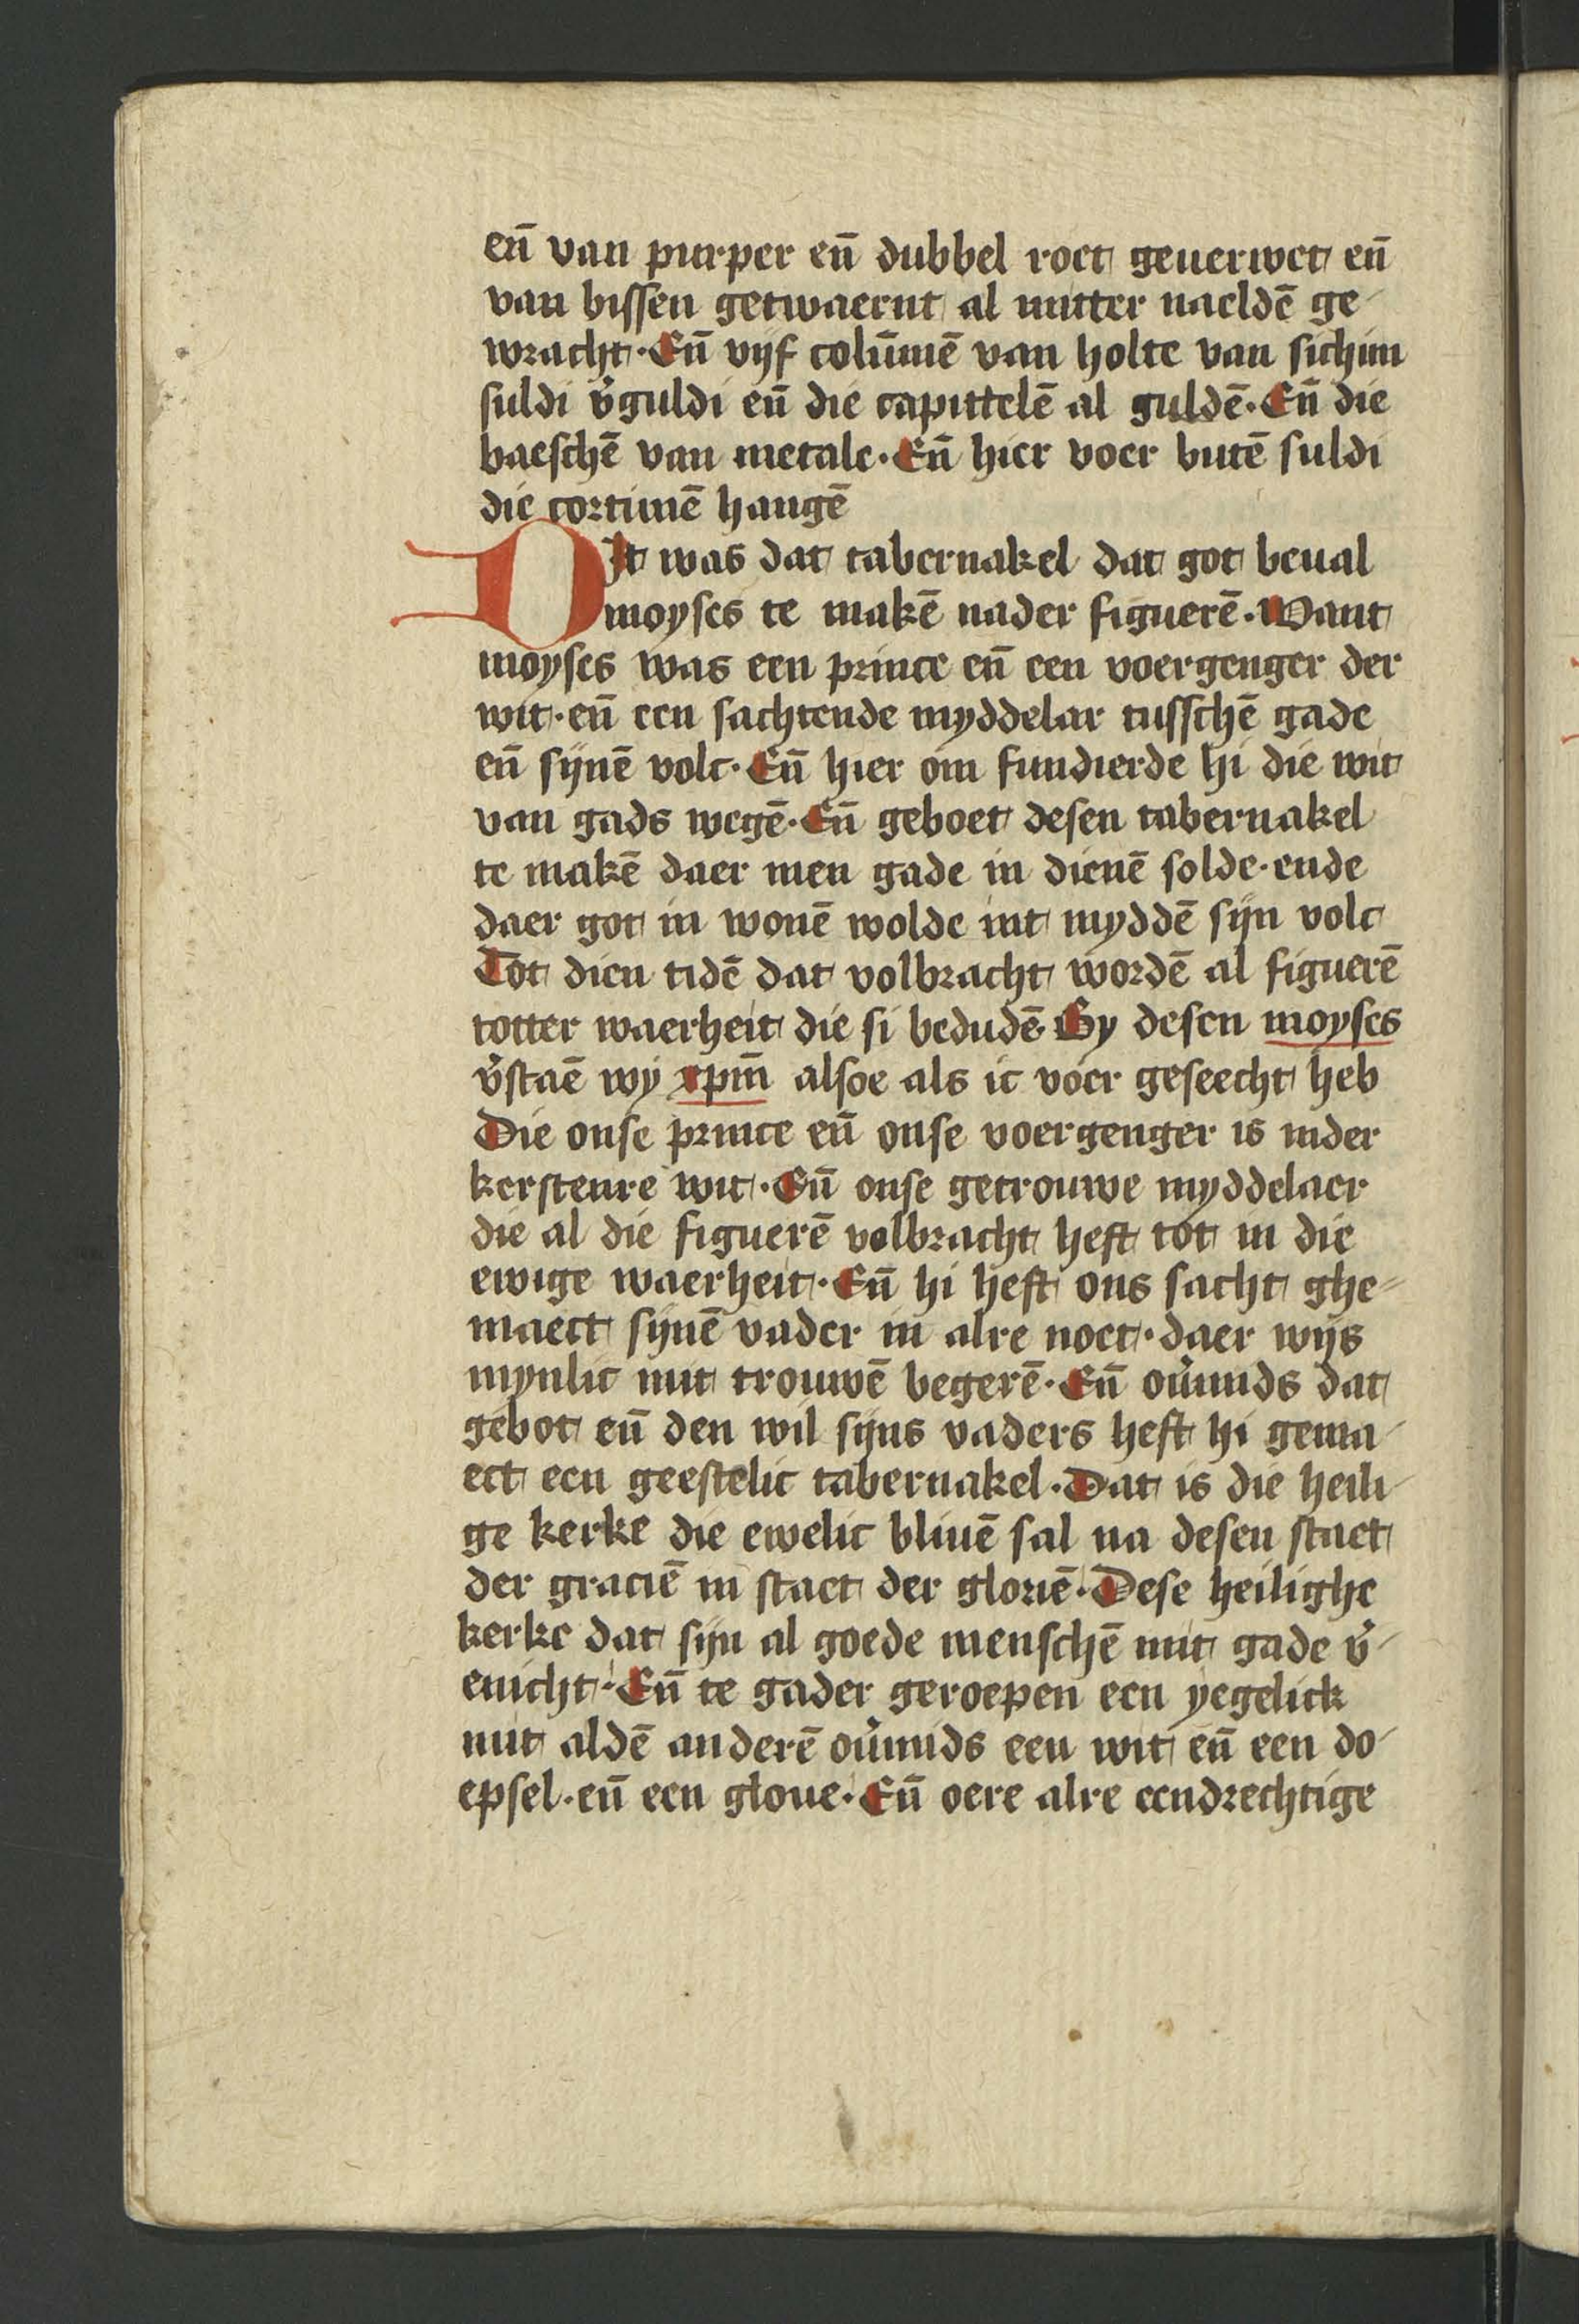 en̄ van purper en̄ dubbel roet geuerwet en̄
van bissen getwaernt al mitter naeldē ge-
wracht. En̄ vijf colūmē van holte van sichim
suldi v̉guldi en̄ die capittelē al guldē. En̄ die
baeschē van metale. En̄ hier voer butē suldi
die cortinē hangē
Dit was dat tabernakel dat got beual
moyses te makē nader figuerē. Want
moyses was een prince en̄ een voergenger der
wit. en̄ een sachtende myddelar tusschē gade
en̄ sijnē volc. En̄ hier om fundierde hi die wit
van gads wegē. En̄ geboet desen tabernakel
te makē daer men gade in dienē solde. ende
daer got in wonē wolde int myddē sijn volc
Tot dien tidē dat volbracht wordē al figuerē
totter waerheit die si bedudē. By desen moyses
v̉staē wy xpm̄ alsoe als ic voer geseecht heb
Die onse prince en̄ onse voergenger is inder
kerstenre wit. En̄ onse getrouwe myddelaer
die al die figuerē volbracht heft tot in die
ewige waerheit. En̄ hi heft ons sacht ghe-
maect sijnē vader in alre noet. daer wijs
mynlic mit trouwē begerē. En̄ ou̓mids dat
gebot en̄ den wil sijns vaders heft hi gema-
ect een geestelic tabernakel. Dat is die heili-
ge kerke die ewelic bliuē sal na desen staet
der graciē in staet der gloriē. Dese heilighe
kerke dat sijn al goede menschē mit gade v̉-
enicht. En̄ te gader geroepen een yegelick
mit aldē anderē ou̓mids een wit en̄ een do-
epsel. en̄ een gloue. En̄ oere alre eendrechtige